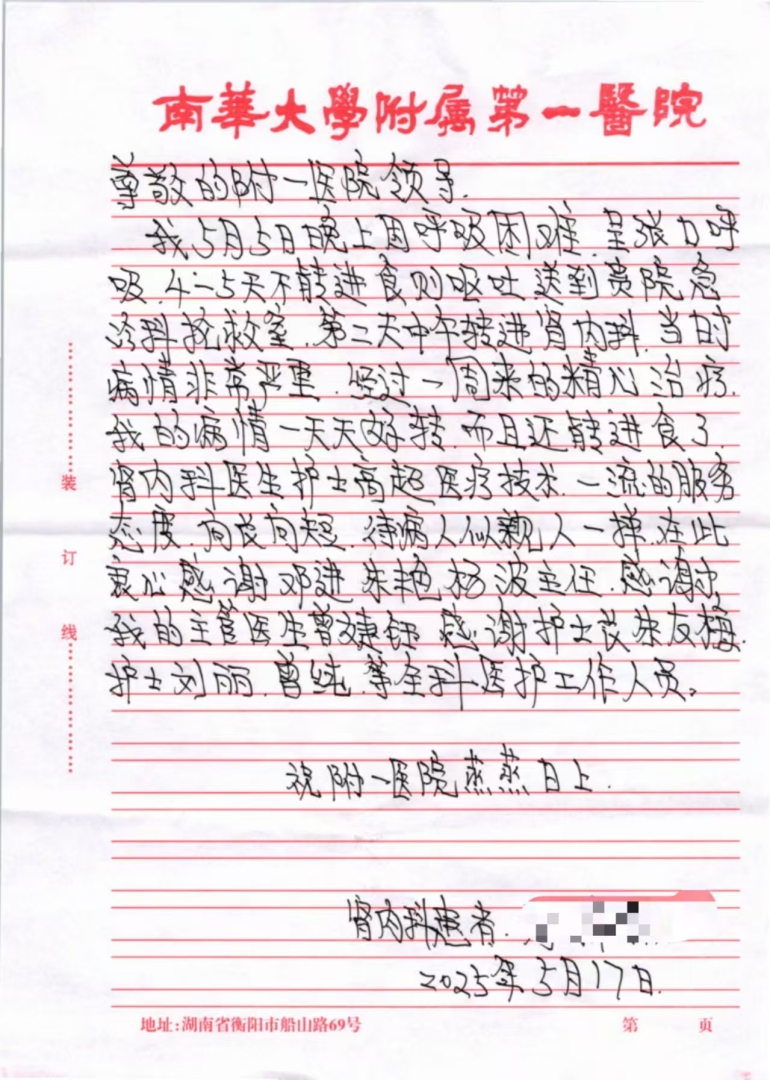 南華大學附属第一醫院
尊敬的附一医院领导.
我5月5日晚上因呼吸困难.呈张口呼
吸.4-5天不能进食则吸吐.送到贵院急
诊科抢救室.第二天中午转进肾内科.当时
病情非常严重 经过一周来的精心治疗.
我的病情一天天好转 而且还能进食了.
肾内科医生护士高超医疗技术.一流的服务
态度.问长问短.待病人似亲人一样.在此
衷心感谢邓进 朱艳 杨波主任.感谢
我的主管医生曾婕 感谢护士长朱友梅.
护士刘丽.曾纯.等全科医护工作人员。
祝附一医院蒸蒸日上.
肾内科患者.
2025年5月17日.
装
订
线
地址:湖南省衡阳市船山路69号
第 页